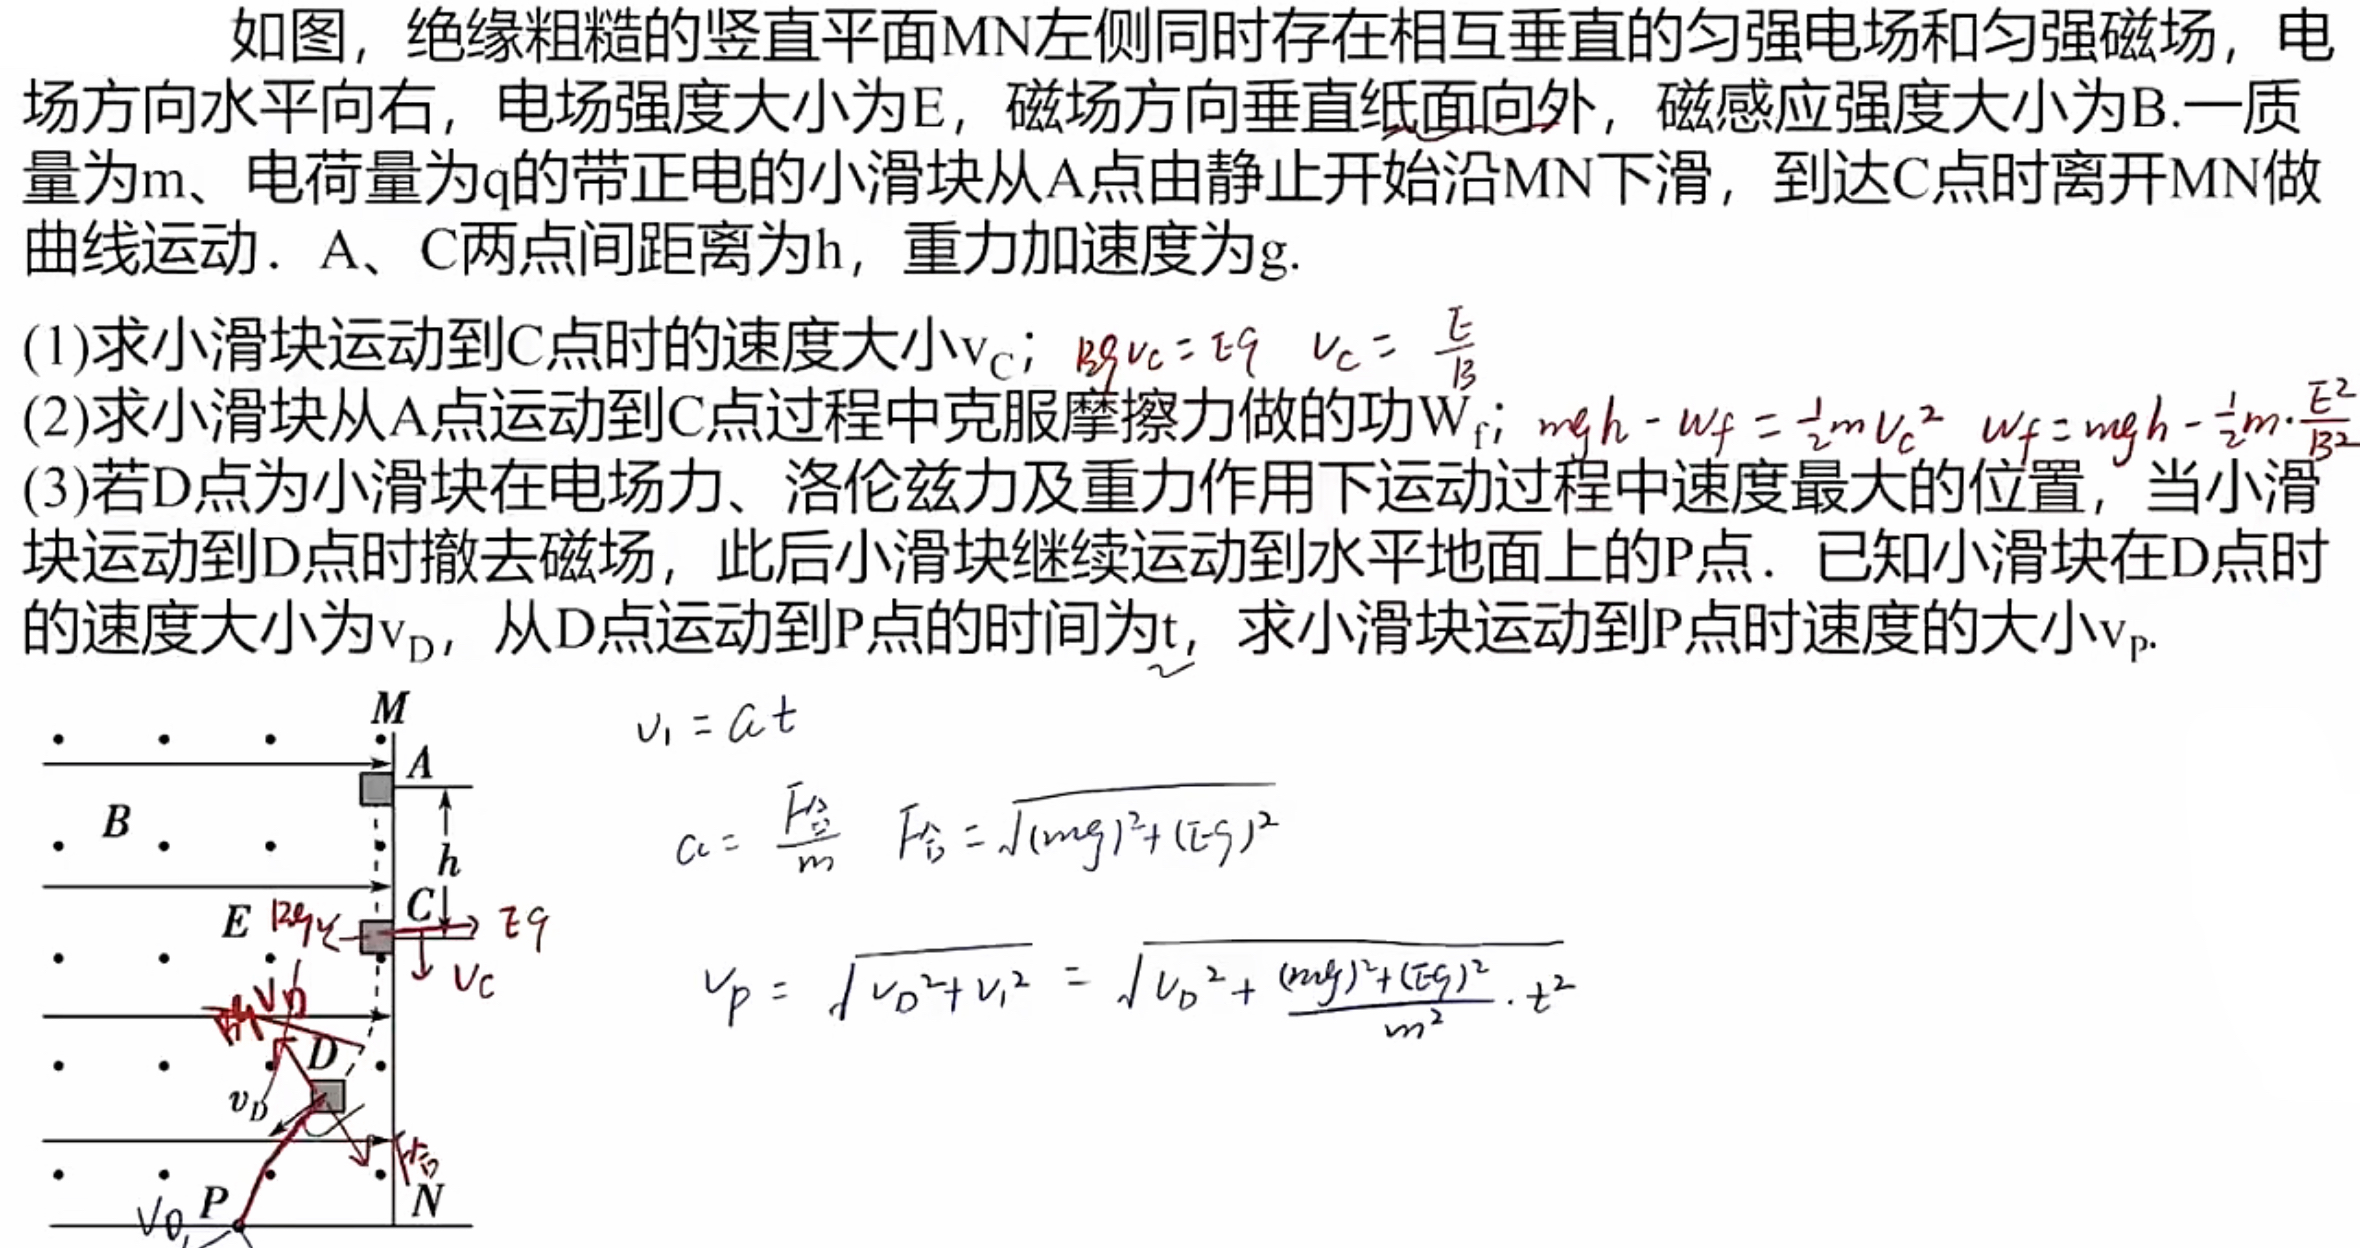 如图，绝缘粗糙的竖直平面MN左侧同时存在相互垂直的匀强电场和匀强磁场，电
场方向水平向右，电场强度大小为E，磁场方向垂直纸面向外，磁感应强度大小为B.一质
量为m、电荷量为q的带正电的小滑块从A点由静止开始沿MN下滑，到达C点时离开MN做
曲线运动．A、C两点间距离为h，重力加速度为g.
(1)求小滑块运动到C点时的速度大小v_C； Bqv_C = Eq v_C = E/B
(2)求小滑块从A点运动到C点过程中克服摩擦力做的功W_f； mgh - W_f = 1/2 mv_C² W_f = mgh - 1/2 m·E²/B²
(3)若D点为小滑块在电场力、洛伦兹力及重力作用下运动过程中速度最大的位置，当小滑
块运动到D点时撤去磁场，此后小滑块继续运动到水平地面上的P点．已知小滑块在D点时
的速度大小为v_D，从D点运动到P点的时间为t，求小滑块运动到P点时速度的大小v_P.
v₁ = at
a = F合/m F合 = √((mg)²+(Eq)²)
v_P = √(v_D²+v₁²) = √(v_D²+((mg)²+(Eq)²)/m²·t²)
M
A
B
h
C
E
Eq
v_C
D
v_D
F合
P
N